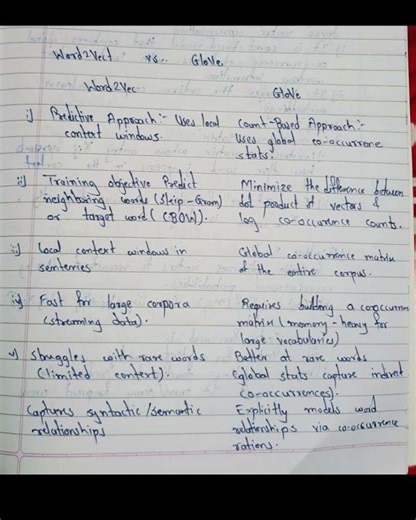 Word2Vect vs.. GloVe
Word2Vec GloVe
i) Predictive Approach :- Uses local Count-Based Approach :-
context windows. Uses global co-occurrene
stats.
ii) Training objective Predict Minimize the difference between
neighboring words (Skip-Gram) dot product of vectors &
or target word (CBOW). log co-occurence counts.
iii) Local context window in Global co-occurrence matrix
sentences of the entire corpus.
iv) Fast for large corpora Requires building a
(streaming data). matrix (memory-heavy for
large vocabularies)
v) Struggles with rare words Better at rare words
(limited context). (global stats capture indirect
co-occurrences).
Captures syntactic/semantic Explicitly models word
relationships relationships via co-occurrence
rations.